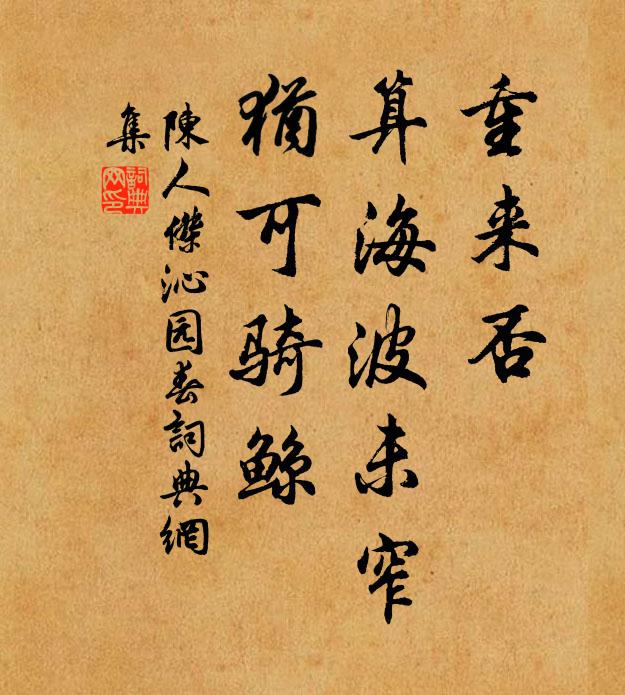 重来否
算海波未窄
猶可骑鲸
陳人傑沁园春詞典網
集
詞典网印